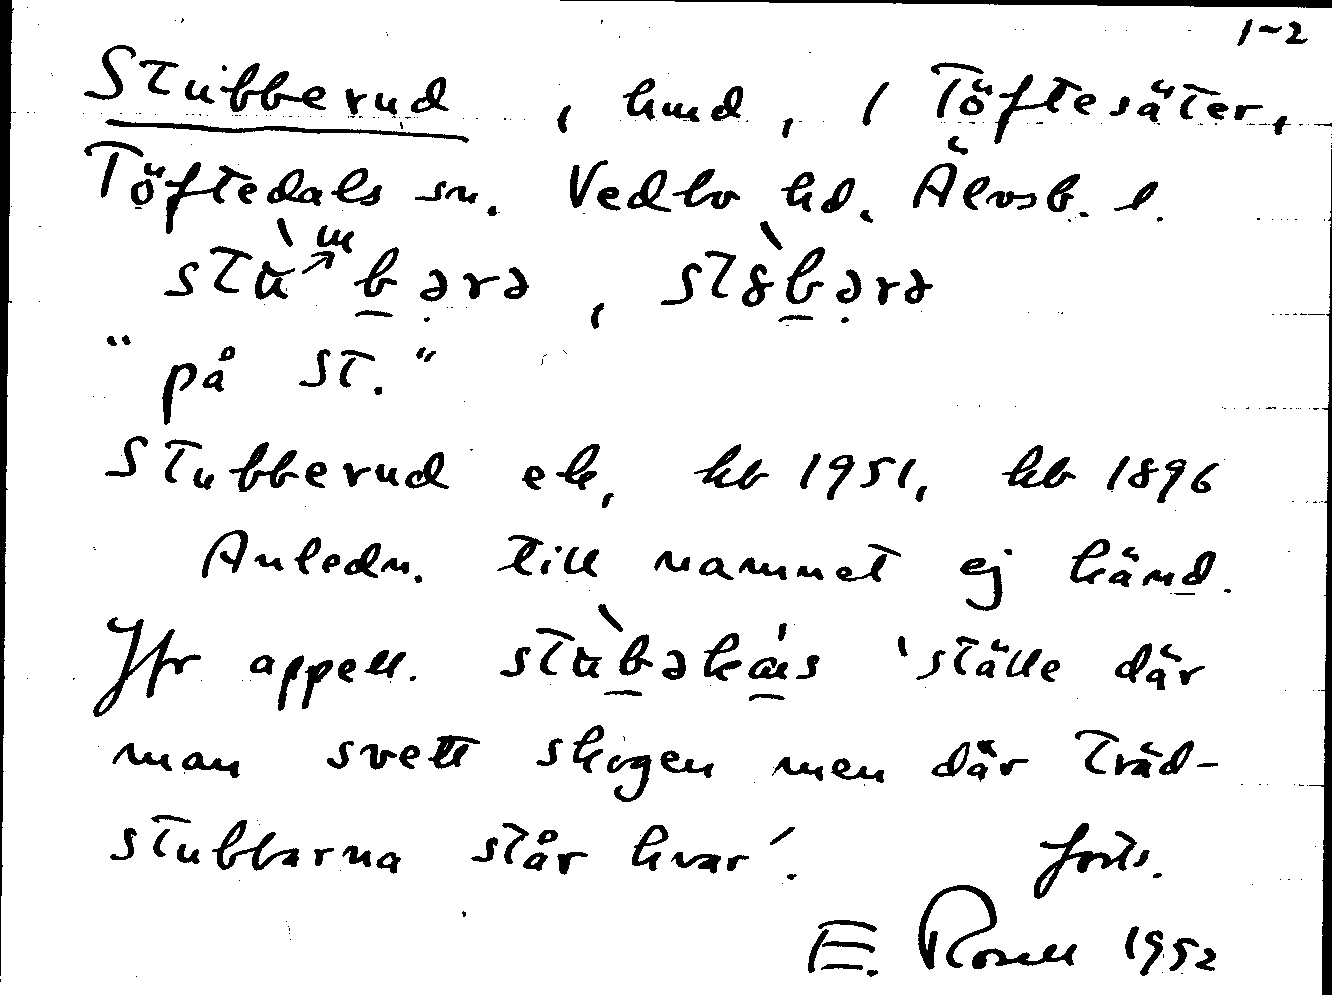 1-2
Stubberud, hmd, i Töftesäter,
Töftedals sn. Vedbo hd. Älvsb. l.
stù b̲ərə, stȣ̀b̲ərə
"på St."
Stubberud ek, kb 1951, kb 1896
Anledn. till namnet ej känd.
Jfr appell. stùb̲əká̲s 'ställe där
man svett skogen men där träd-
stubbarna står kvar'. forts.
E. Rosell 1952